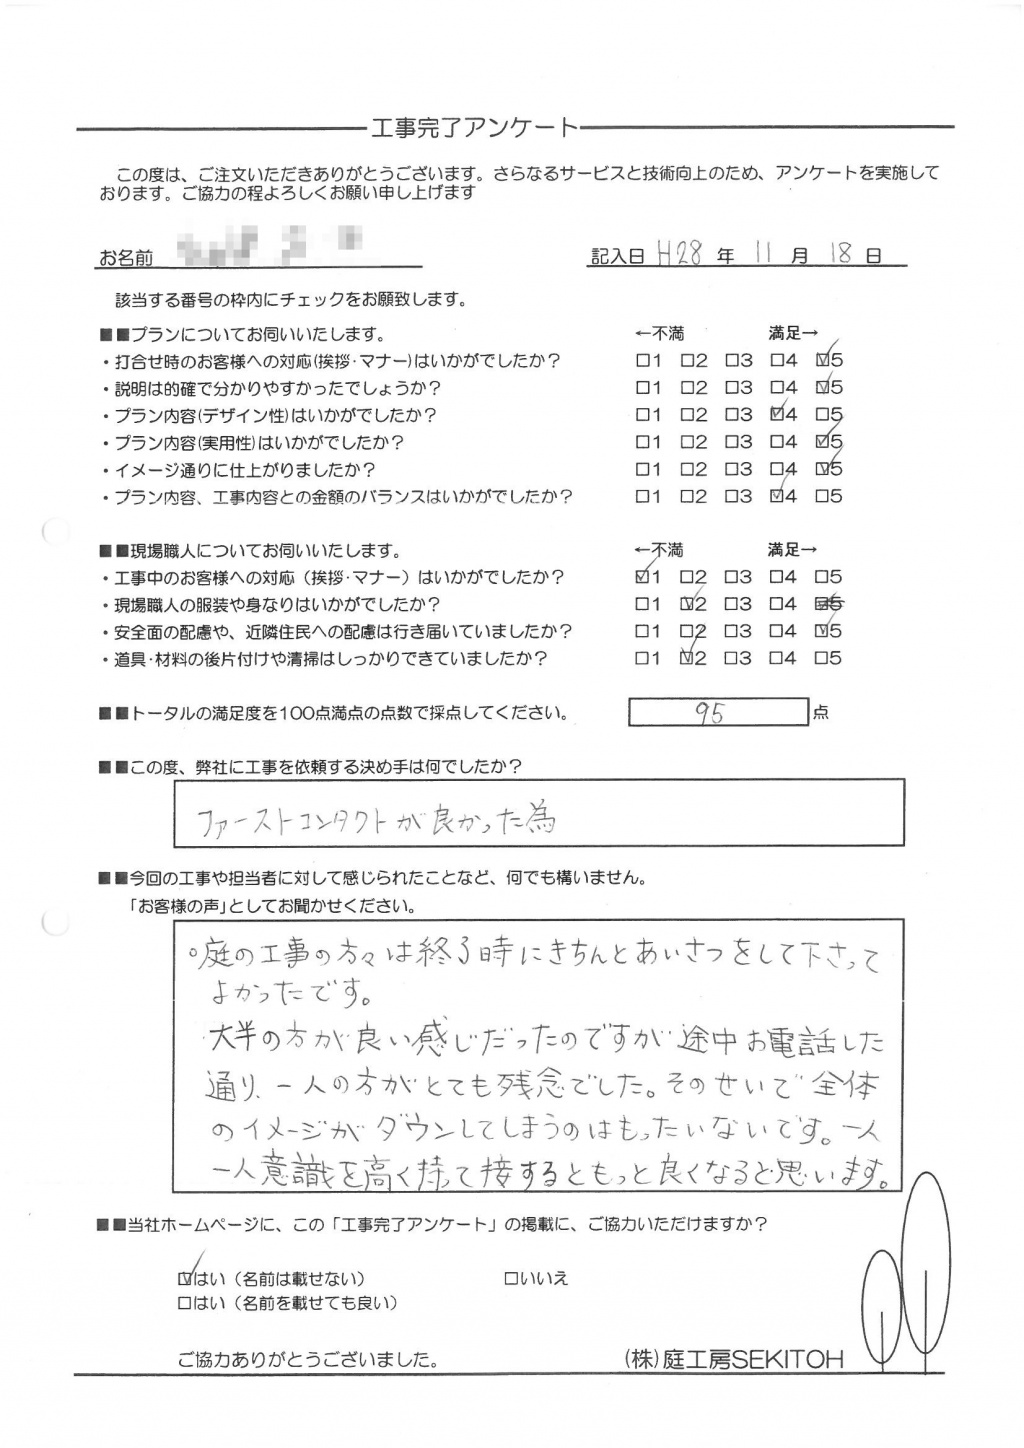 工事完了アンケート
この度は、ご注文いただきありがとうございます。さらなるサービスと技術向上のため、アンケートを実施して
おります。ご協力の程よろしくお願い申し上げます
お名前 記入日 H28 年 11 月 18 日
該当する番号の枠内にチェックをお願致します。
■■プランについてお伺いいたします。 ←不満 満足→
・打合せ時のお客様への対応(挨拶・マナー)はいかがでしたか? □1 □2 □3 □4 ☑5
・説明は的確で分かりやすかったでしょうか? □1 □2 □3 □4 ☑5
・プラン内容(デザイン性)はいかがでしたか? □1 □2 □3 ☑4 □5
・プラン内容(実用性)はいかがでしたか? □1 □2 □3 □4 ☑5
・イメージ通りに仕上がりましたか? □1 □2 □3 □4 ☑5
・プラン内容、工事内容との金額のバランスはいかがでしたか? □1 □2 □3 ☑4 □5
■■現場職人についてお伺いいたします。 ←不満 満足→
・工事中のお客様への対応（挨拶・マナー）はいかがでしたか? ☑1 □2 □3 □4 □5
・現場職人の服装や身なりはいかがでしたか? □1 ☑2 □3 □4 ☑5
・安全面の配慮や、近隣住民への配慮は行き届いていましたか? □1 □2 □3 □4 ☑5
・道具・材料の後片付けや清掃はしっかりできていましたか? □1 ☑2 □3 □4 □5
■■トータルの満足度を100点満点の点数で採点してください。 95 点
■■この度、弊社に工事を依頼する決め手は何でしたか?
ファーストコンタクトが良かった為
■■今回の工事や担当者に対して感じられたことなど、何でも構いません。
「お客様の声」としてお聞かせください。
○庭の工事の方々は終了時にきちんとあいさつをして下さって
よかったです。
大半の方が良い感じだったのですが途中お電話した
通り、一人の方がとても残念でした。そのせいで全体
のイメージがダウンしてしまうのはもったいないです。一人
一人意識を高く持って接するともっと良くなると思います。
■■当社ホームページに、この「工事完了アンケート」の掲載に、ご協力いただけますか?
☑はい（名前は載せない） □いいえ
□はい（名前を載せても良い）
ご協力ありがとうございました。 (株)庭工房SEKITOH